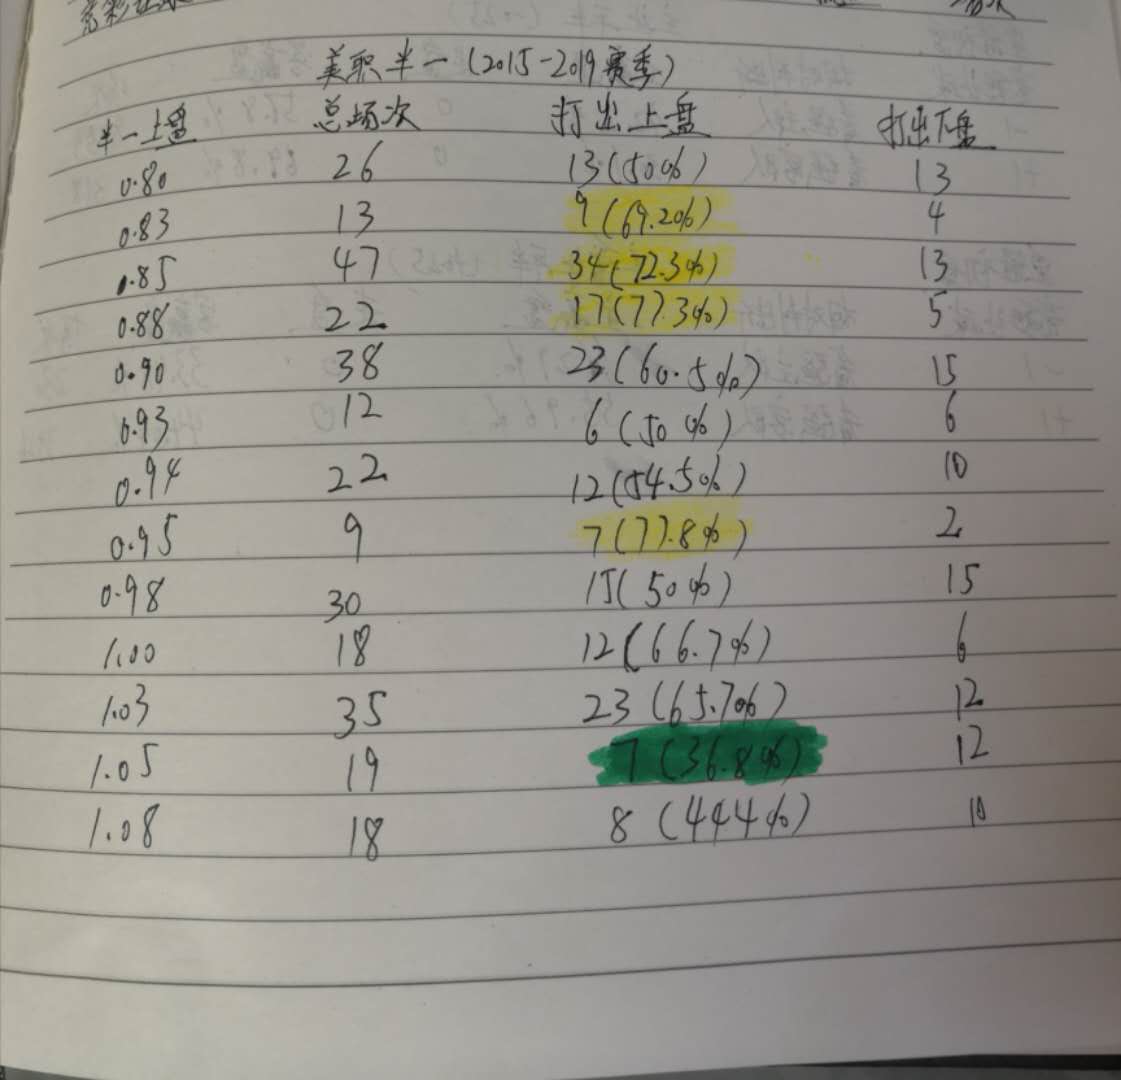 美职半一(2015-2019赛季)
半一上盘 总场次 打出上盘 打出下盘
0.80 26 13(50%) 13
0.83 13 9(69.2%) 4
0.85 47 34(72.3%) 13
0.88 22 17(77.3%) 5
0.90 38 23(60.5%) 15
0.93 12 6(50%) 6
0.94 22 12(54.5%) 10
0.95 9 7(77.8%) 2
0.98 30 15(50%) 15
1.00 18 12(66.7%) 6
1.03 35 23(65.7%) 12
1.05 19 7(36.8%) 12
1.08 18 8(444%) 10